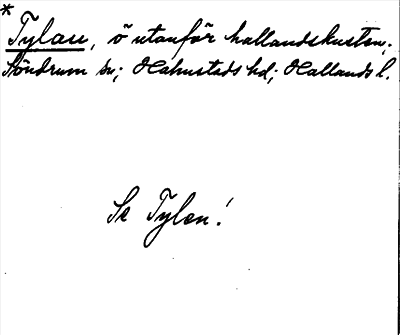 *
Tylau, ö utanför hallandskusten,
Söndrum sn; Halmstads hd; Hallands l.
Se Tylen!